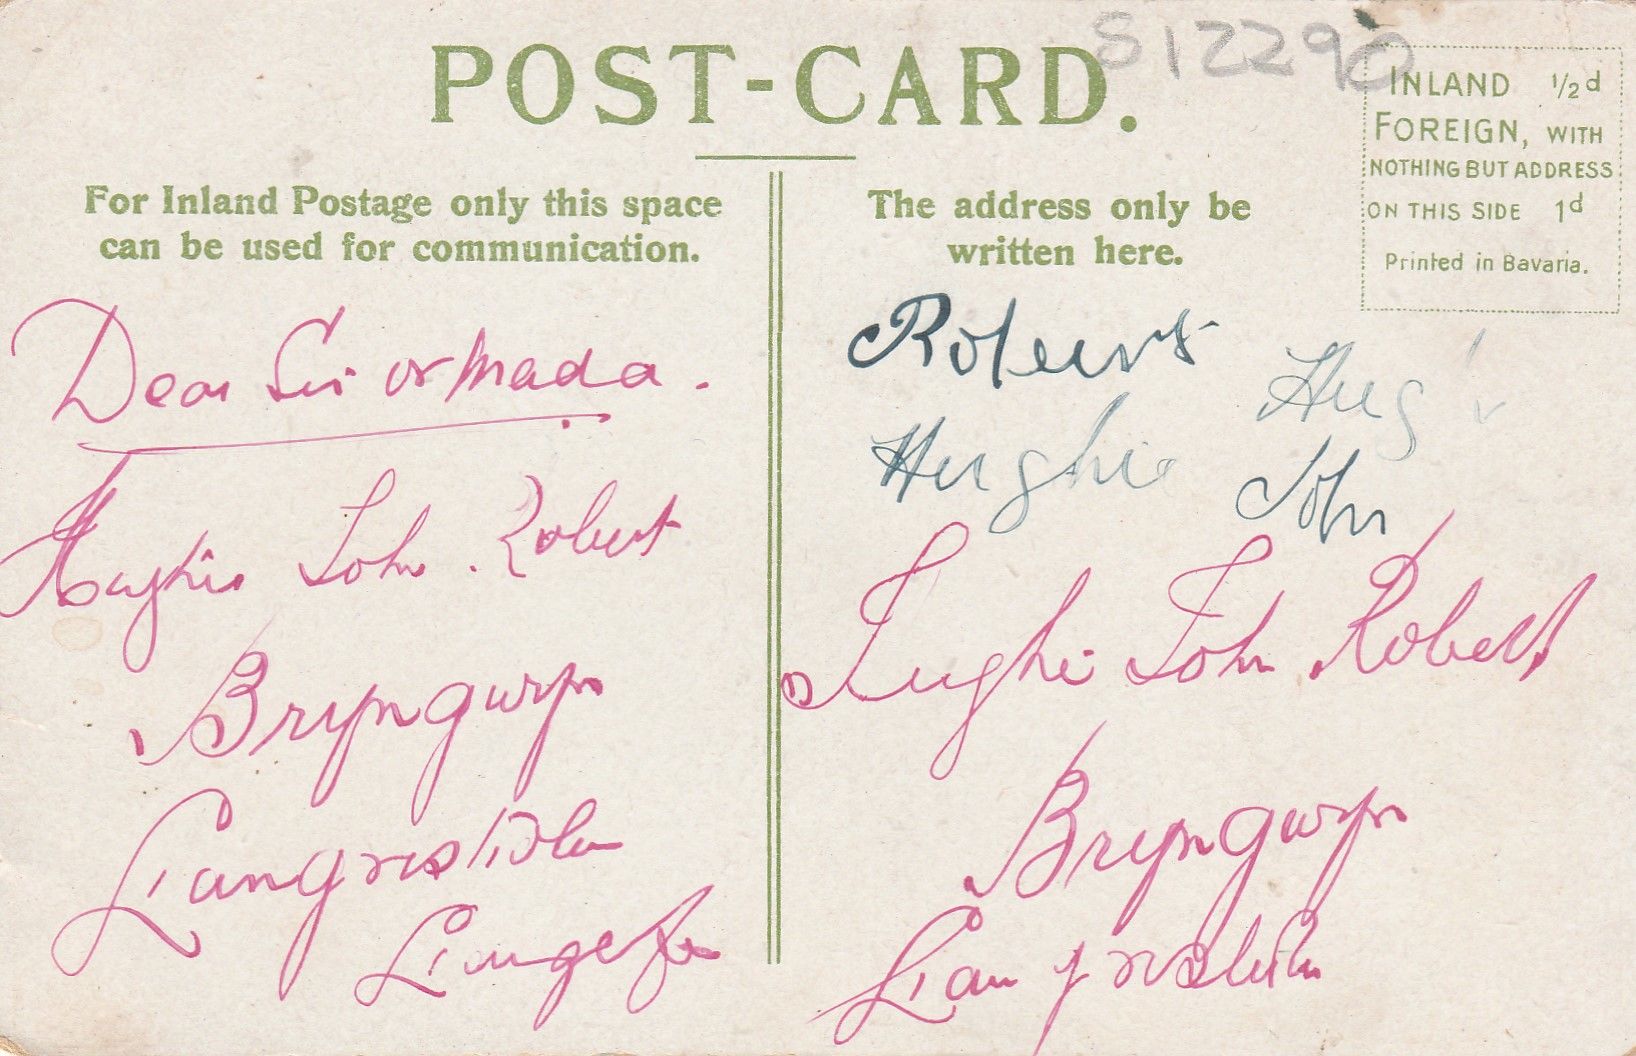 POST-CARD.
S12290
INLAND 1/2d
FOREIGN, WITH
NOTHING BUT ADDRESS
ON THIS SIDE 1d
Printed in Bavaria.
For Inland Postage only this space
can be used for communication.
Dear Sir or Mada.
Hughie John Robert
Bryngwyn
Llangristiolus
The address only be
written here.
Roberts
Hugh
Hughie
John
Hughie John Robert
Bryngwyn
Llangristiolus